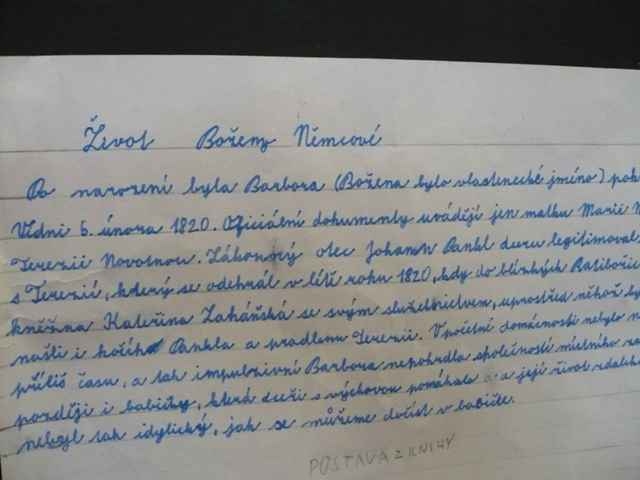 Život Boženy Němcové
Po narození byla Barbora (Božena bylo vlastenecké jméno) pok
Vídni 5. února 1820. Oficiální dokumenty uvádějí jen matku Marii
Terezii Novotnou. Zákonný otec Johann Pankl dceru legitimoval
s Terezií, který se odehrál v létě roku 1820, kdy do blízkých Ratibořic
kněžna Kateřina Zaháňská se svým služebnictvem, uprostřed něhož by
našli i kočího Pankla a pradlenu Terezii. V početné domácnosti nebylo
příliš času, a tak impulzivní Barbora nepohrdla společností místního
později i babičky, která dceři s výchovou pomáhala a její život zdaleka
nebyl tak idylický, jak se můžeme dočíst v babičce.
POSTAVA Z KNIHY